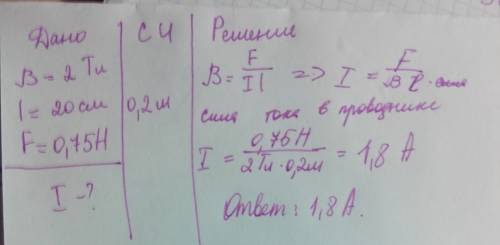 Дано
В = 2 Тл
l = 20 см
F = 0,75Н
I - ?
СИ
0,2 м
Решение
B = F/Il => I = F/Bl - сила
сила тока в проводнике
I = 0,75Н/2Тл·0,2м = 1,8 А
Ответ: 1,8 А.